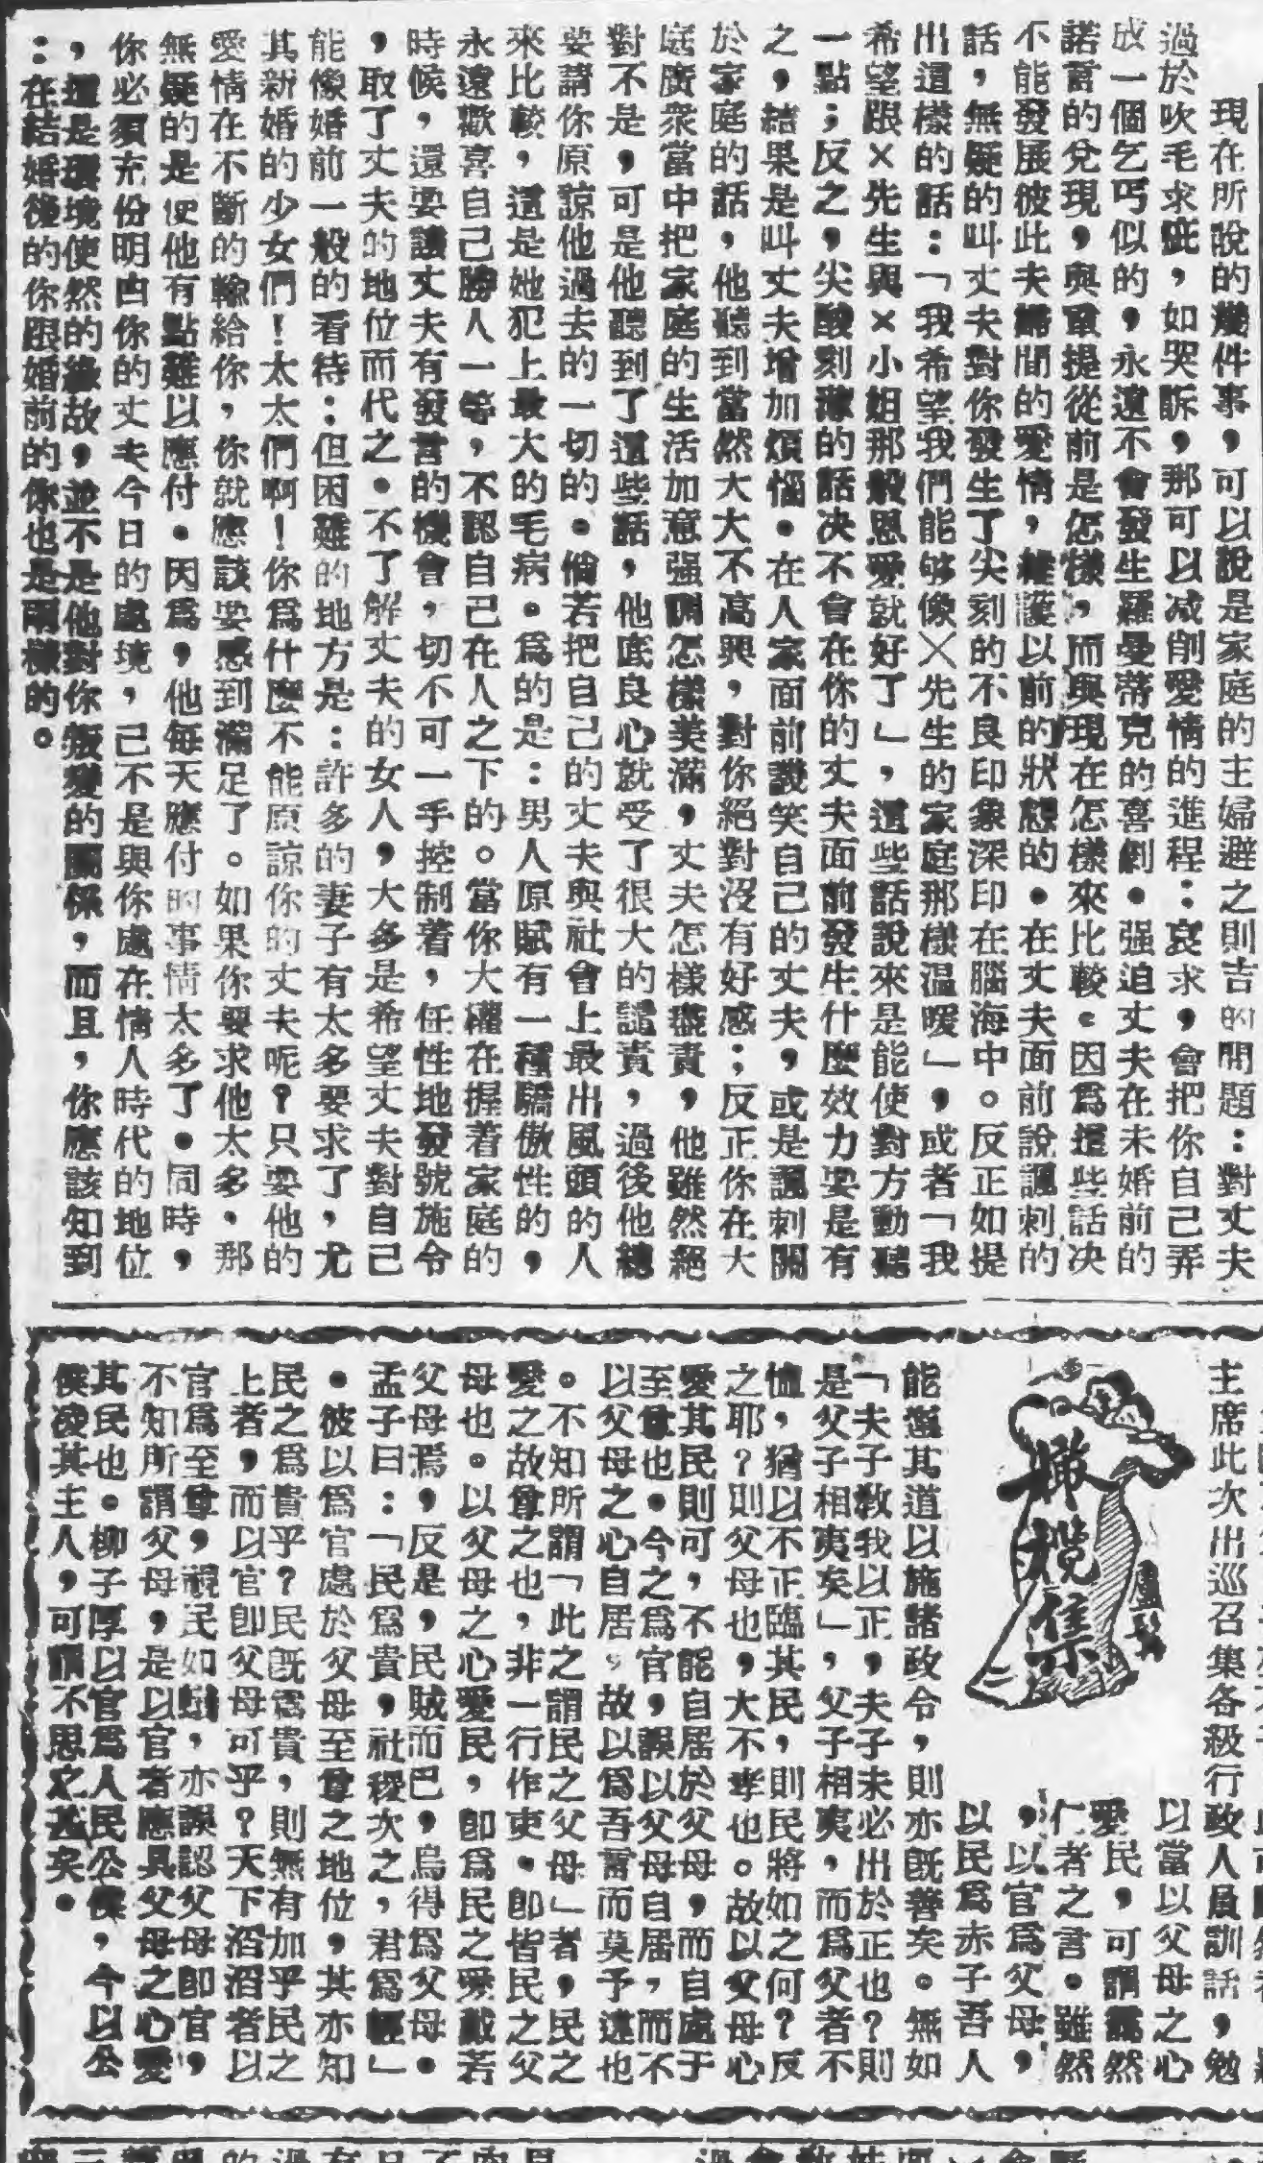 現在所說的幾件事，可以說是家庭的主婦避之則吉的問題：對丈夫
過於吹毛求疵，如哭訴，那可以减削愛情的進程：哀求，會把你自己弄
成一個乞丐似的，永遠不會發生羅曼蒂克的喜劇。强迫丈夫在未婚前的
諾言的兌現，與重提從前是怎樣，而與現在怎樣來比較。因爲這些話决
不能發展彼此夫婦間的愛情，維護以前的狀態的。在丈夫面前說諷刺的
話，無疑的叫丈夫對你發生了尖刻的不良印象深印在腦海中。反正如提
出這樣的話：「我希望我們能够像×先生的家庭那樣温暖」，或者「我
希望跟×先生與×小姐那般恩愛就好了」，這些話說來是能使對方動聽
一點；反之，尖酸刻薄的話决不會在你的丈夫面前發生什麼效力要是有
之，結果是叫丈夫增加煩惱。在人家面前談笑自己的丈夫，或是諷刺關
於家庭的話，他聽到當然大大不高興，對你絕對沒有好感；反正你在大
庭廣衆當中把家庭的生活加意强調怎樣美滿，丈夫怎樣盡責，他雖然絕
對不是，可是他聽到了這些話，他底良心就受了很大的譴責，過後他總
要請你原諒他過去的一切的。倘若把自己的丈夫與社會上最出風頭的人
來比較，這是她犯上最大的毛病。爲的是：男人原賦有一種驕傲性的，
永遠歡喜自己勝人一等，不認自己在人之下的。當你大權在握着家庭的
時候，還要讓丈夫有發言的機會，切不可一手控制着，任性地發號施令
，取了丈夫的地位而代之。不了解丈夫的女人，大多是希望丈夫對自己
能像婚前一般的看待：但困難的地方是：許多的妻子有太多要求了，尤
其新婚的少女們！太太們啊！你爲什麼不能原諒你的丈夫呢？只要他的
愛情在不斷的輸給你，你就應該要感到滿足了。如果你要求他太多，那
無疑的是使他有點難以應付。因爲，他每天應付的事情太多了。同時，
你必須充份明白你的丈夫今日的處境，己不是與你處在情人時代的地位
，這是環境使然的緣故，並不是他對你叛變的關係，而且，你應該知到
：在結婚後的你跟婚前的你也是兩樣的。
主席此次出巡召集各級行政人員訓話，勉
以當以父母之心
愛民，可謂靄然
仁者之言。雖然
，以官爲父母，
以民爲赤子吾人
能運其道以施諸政令，則亦旣善矣。無如
「夫子敎我以正，夫子未必出於正也？則
是父子相夷矣」，父子相夷，而爲父者不
恤，猶以不正臨其民，則民將如之何？反
之耶？則父母也，大不孝也。故以父母心
愛其民則可，不能自居於父母，而自處于
至尊也。今之爲官，誤以父母自居，而不
以父母之心自居。故以爲吾言而莫予違也
。不知所謂「此之謂民之父母」者，民之
愛之故尊之也，非一行作吏。卽皆民之父
母也。以父母之心愛民，卽爲民之愛戴若
父母焉，反是，民賊而巳，烏得爲父母。
孟子曰：「民爲貴，社稷次之，君爲輕」
。彼以爲官處於父母至尊之地位，其亦知
民之爲貴乎？民旣爲貴，則無有加乎民之
上者，而以官卽父母可乎？天下滔滔者以
官爲至尊，視民如蟻，亦誤認父母卽官，
不知所謂父母，是以官者應具父母之心愛
其民也。柳子厚以官爲人民公僕，今以公
僕凌其主人，可謂不思之甚矣。